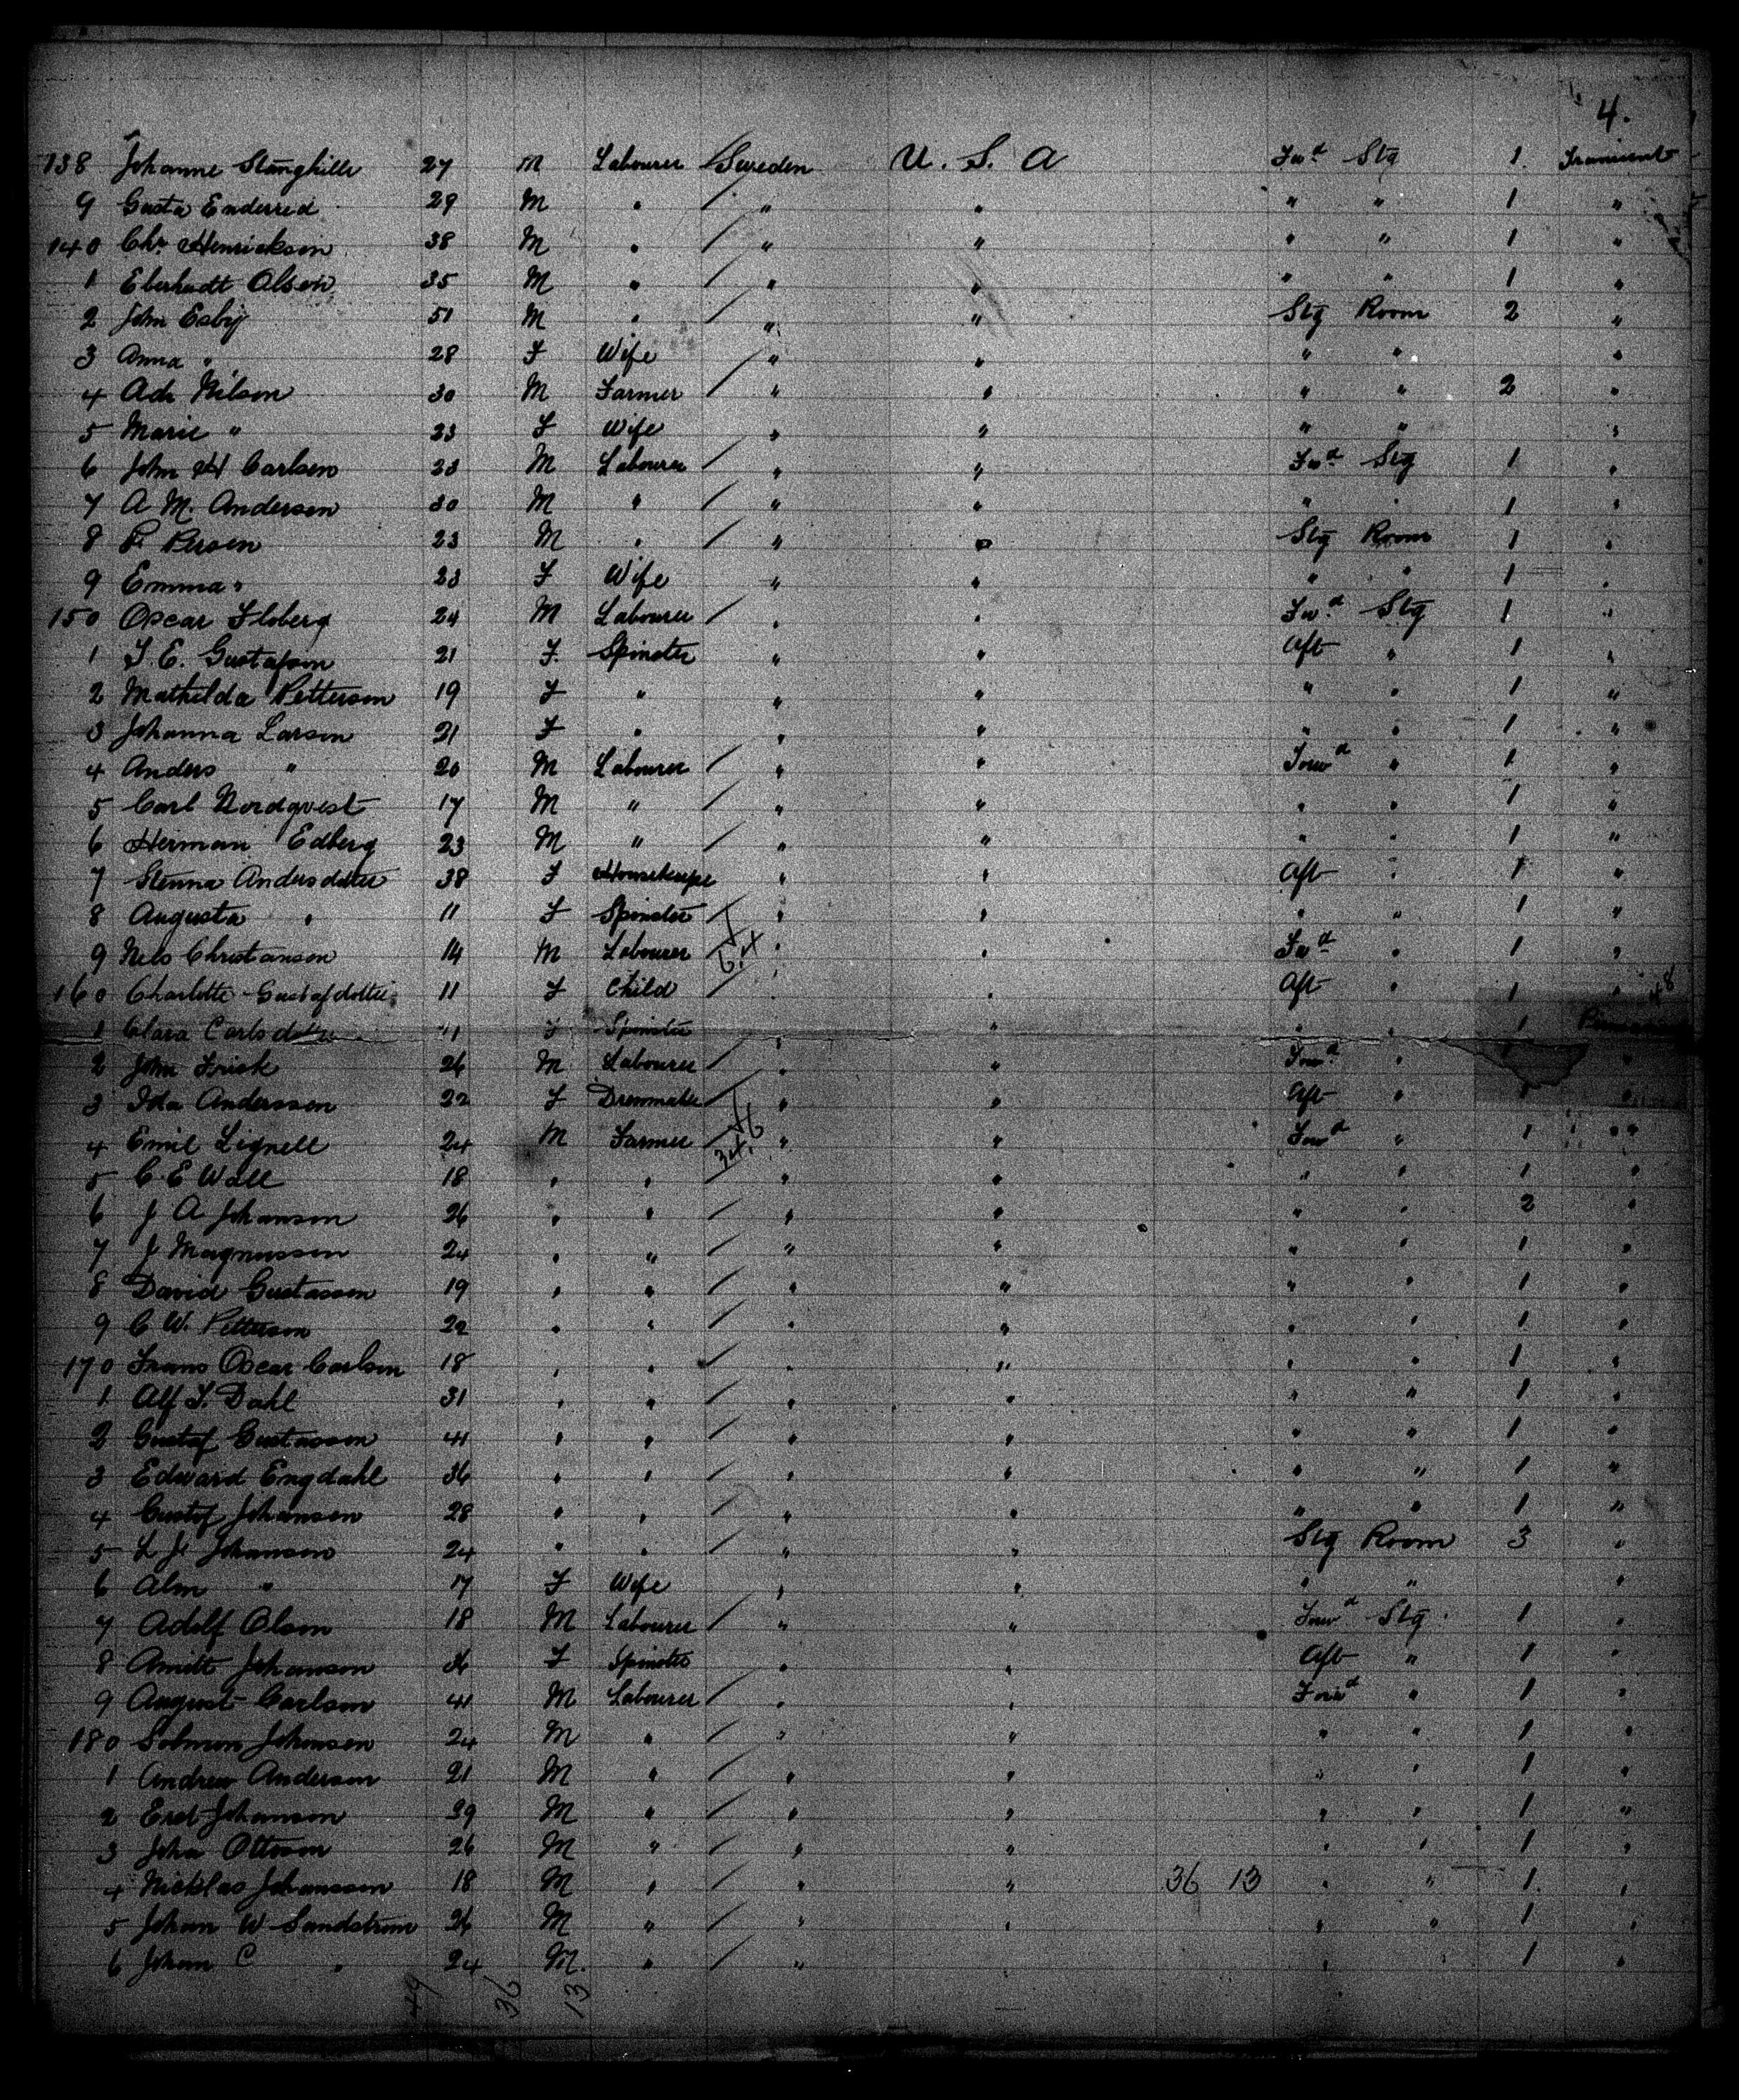 4.
138 Johanne Stanghille 27 M Labourer Sweden U. S. A Fwd Stg 1 Transient
9 Gusta Enderred 29 M " " " " " 1 "
140 Chr. Henrickson 38 M " " " " " 1 "
1 Eberhadt Olsen 35 M " " " " " 1 "
2 John Esbij 51 M " " " Stg Room 2 "
3 Anna " 28 F Wife " " " " "
4 Adr Nilson 30 M Farmer " " " " 2 "
5 Marie " 23 F Wife " " " " "
6 John H Carlson 23 M Labourer " " Fwd Stg 1 "
7 A M. Anderson 30 M " " " " " 1 "
8 P. Person 23 M " " " Stg Room 1 "
9 Emma " 23 F Wife " " " " 1 "
150 Oscar Floberg 24 M Labourer " " Fwd Stg 1 "
1 S. E. Gustafson 21 F. Spinster " " Aft " 1 "
2 Mathilda Petterson 19 F " " " " " 1 "
3 Johanna Larson 21 F " " " " " 1 "
4 Anders " 20 M Labourer " " Forwd " 1 "
5 Carl Nordqvist 17 M " " " " " 1 "
6 Herman Edberg 23 M " " " " " 1 "
7 Stenna Andersdotter 38 F Housekeeper " " Aft " 1 "
8 Augusta " 11 F Spinster " " " " 1 "
9 Nels Christanson 14 M Labourer " " Fwd " 1 "
160 Charlotte Gustafdotter 11 F Child " " Aft " 1 "
1 Clara Carlsdotter 41 F Spinster " " " 1
2 John Frisk 26 M Labourer " " Forwd " 1 "
3 Ida Anderson 22 F Dressmaker " " Aft " 1 "
4 Emil Lignell 24 M Farmer " " Forwd " 1 "
5 C. E Wall 18 " " " " " " 1 "
6 J A Johanson 26 " " " " " " 2 "
7 J Magnusson 24 " " " " " " 1 "
8 David Gustasson 19 " " " " " " 1 "
9 C W. Petterson 22 " " " " " " 1 "
170 Frans Oscar Carlson 18 " " " " " " 1 "
1 Alf S. Dahl 31 " " " " " " 1 "
2 Gustaf Gustasson 41 " " " " " " 1 "
3 Edward Engdahl 36 " " " " " " 1 "
4 Gustaf Johanson 28 " " " " " " 1 "
5 L J. Johanson 24 " " " " Stg Room 3 "
6 Alm " 17 F Wife " " " " "
7 Adolf Olson 18 M Labourer " " Forwd Stg 1 "
8 Amitt Johanson 36 F Spinster " " Aft " 1 "
9 August Carlson 41 M Labourer " " Forwd " 1 "
180 Solmon Johanson 24 M " " " " " 1 "
1 Andrew Anderson 21 M " " " " " 1 "
2 Johanson 29 M " " " " " 1 "
3 John Ottoson 26 M " " " " " 1 "
4 Nicklas Johansson 18 M " " " 36 13 " " 1 "
5 Johan W Sandstrom 26 M " " " " " 1 "
6 Johan C " 24 M. " " " 1 "
49 36 13